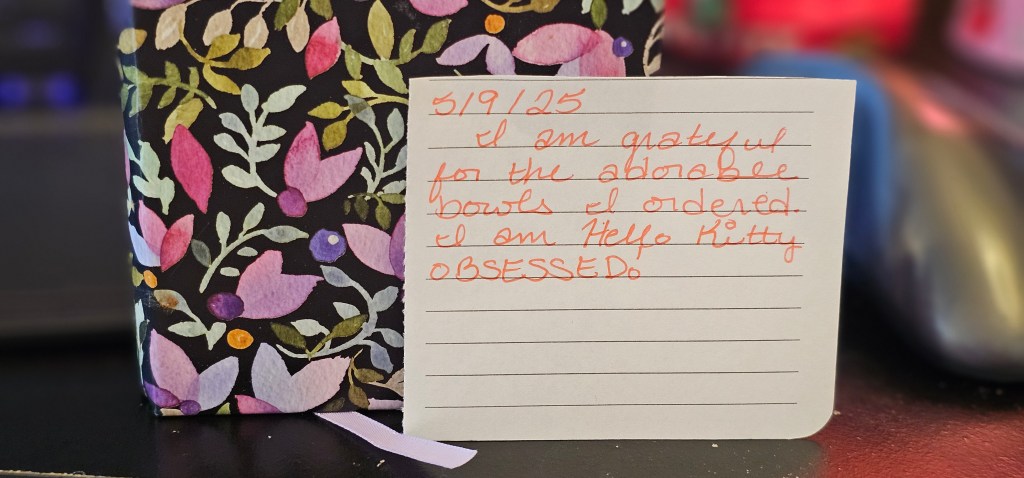 5/9/25
I am grateful
for the adorable
bowls I ordered.
I am Hello Kitty
OBSESSED.